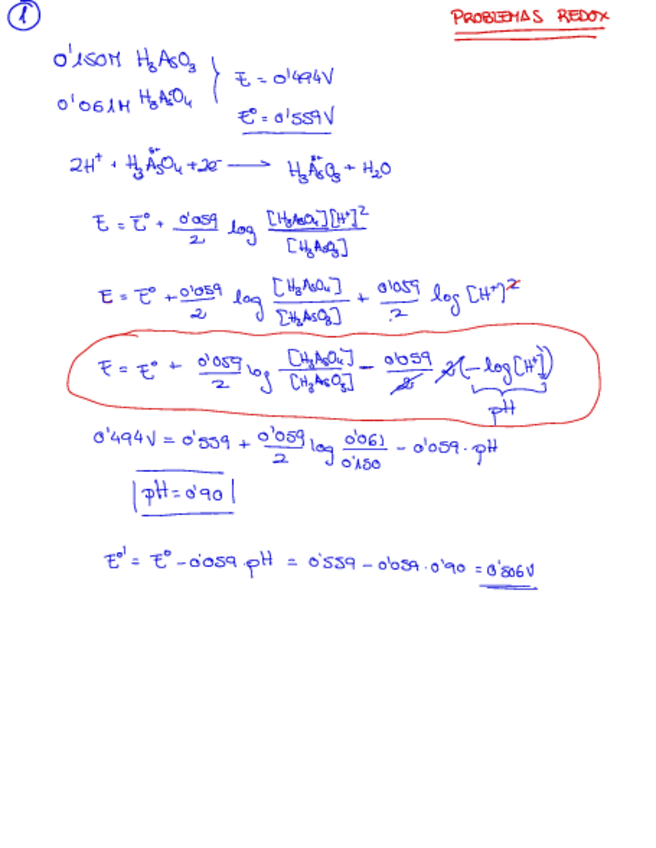 1
PROBLEMAS REDOX
0'150M H3AsO3
0'061M H3AsO4
E = 0'494V
E° = 0'559V
2H⁺ + H3As⁵⁺O4 + 2e⁻ → H3As³⁺O3 + H2O
E = E° + 0'059/2 log [H3AsO4][H⁺]²/[H3AsO3]
E = E° + 0'059/2 log [H3AsO4]/[H3AsO3] + 0'059/2 log [H⁺]²
E = E° + 0'059/2 log [H3AsO4]/[H3AsO3] - 0'059/2 2(-log[H⁺])
pH
0'494V = 0'559 + 0'059/2 log 0'061/0'150 - 0'059 · pH
pH = 0'90
E°' = E° - 0'059 · pH = 0'559 - 0'059 · 0'90 = 0'506V